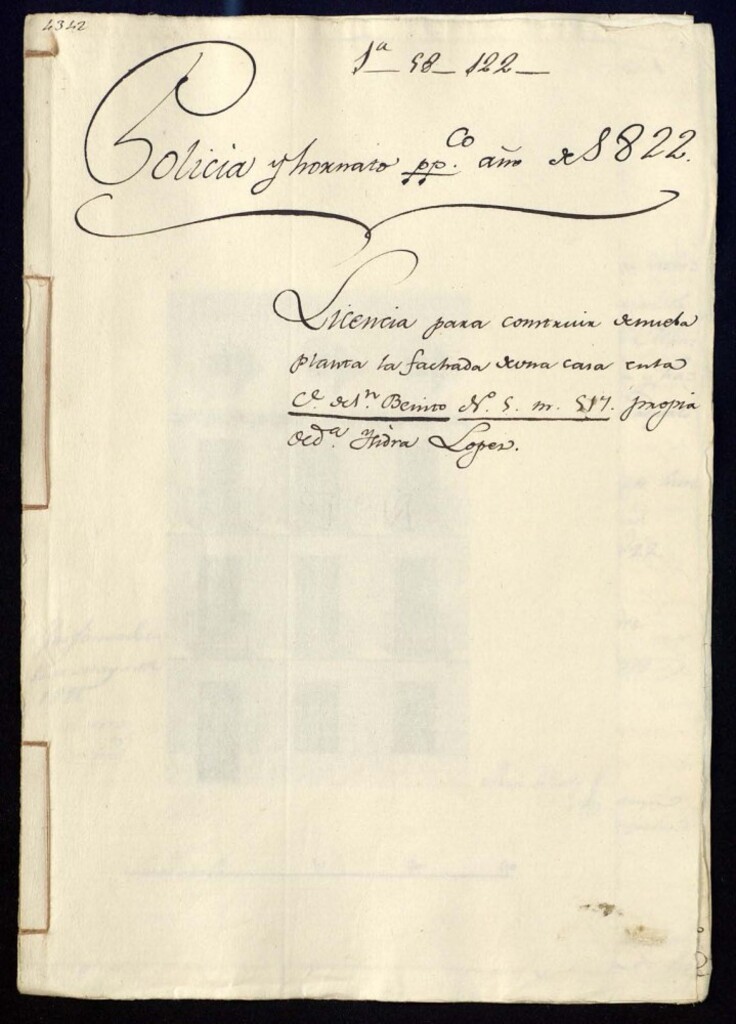 4342
1ª 58 122
Policia y hornato pp.co año de 1822.
Licencia para construir de nueba
planta la fachada de una casa en la
Ce. de Sn. Benito No. 5. m. 517. propia
de da. Ysidra Lopez.